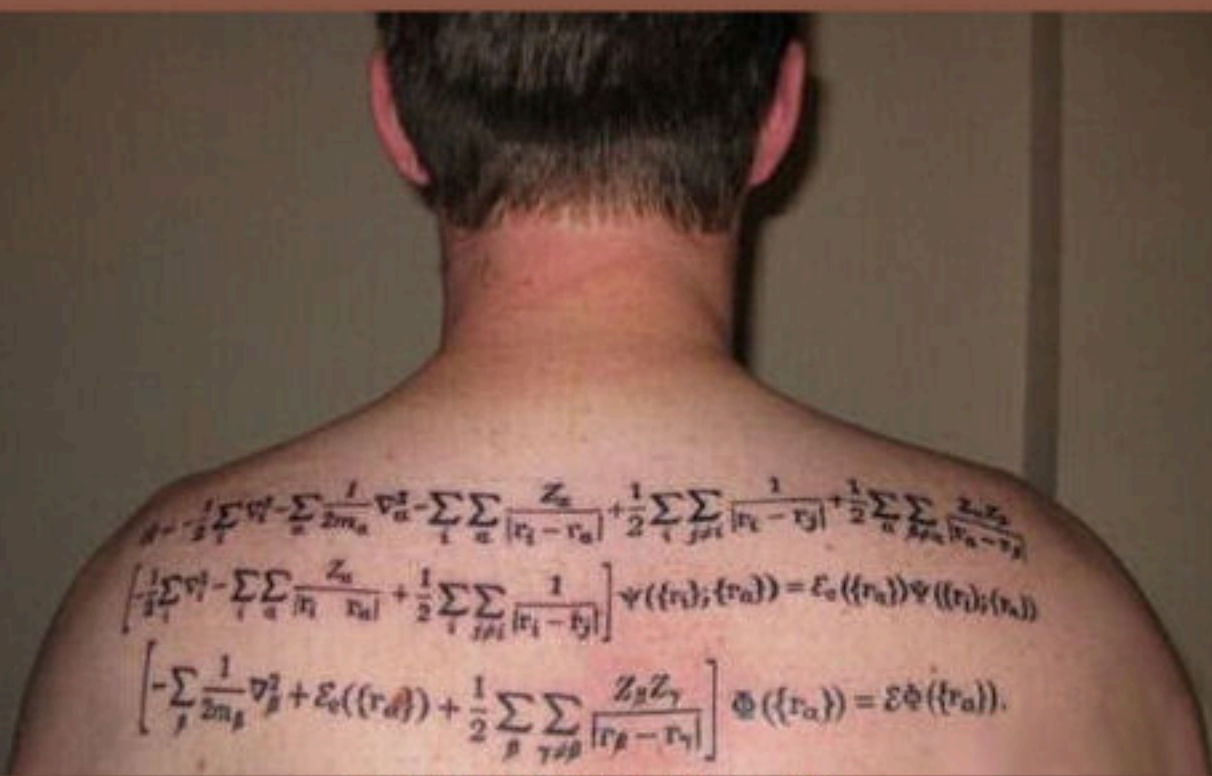 H = -\frac{1}{2}\sum_{i}\nabla_i^2 - \sum_{\alpha}\frac{1}{2m_\alpha}\nabla_\alpha^2 - \sum_{i}\sum_{\alpha}\frac{Z_\alpha}{|r_i - r_\alpha|} + \frac{1}{2}\sum_{i}\sum_{j \neq i}\frac{1}{|r_i - r_j|} + \frac{1}{2}\sum_{\alpha}\sum_{\beta \neq \alpha}\frac{Z_\alpha Z_\beta}{|r_\alpha - r_\beta|}
\left[-\frac{1}{2}\sum_{i}\nabla_i^2 - \sum_{i}\sum_{\alpha}\frac{Z_\alpha}{|r_i - r_\alpha|} + \frac{1}{2}\sum_{i}\sum_{j \neq i}\frac{1}{|r_i - r_j|}\right]\Psi(\{r_i\};\{r_\alpha\}) = \mathcal{E}_e(\{r_\alpha\})\Psi(\{r_i\};\{r_\alpha\})
\left[-\sum_{\beta}\frac{1}{2m_\beta}\nabla_\beta^2 + \mathcal{E}_e(\{r_\alpha\}) + \frac{1}{2}\sum_{\beta}\sum_{\gamma \neq \beta}\frac{Z_\beta Z_\gamma}{|r_\beta - r_\gamma|}\right]\Phi(\{r_\alpha\}) = \mathcal{E}\Phi(\{r_\alpha\}).